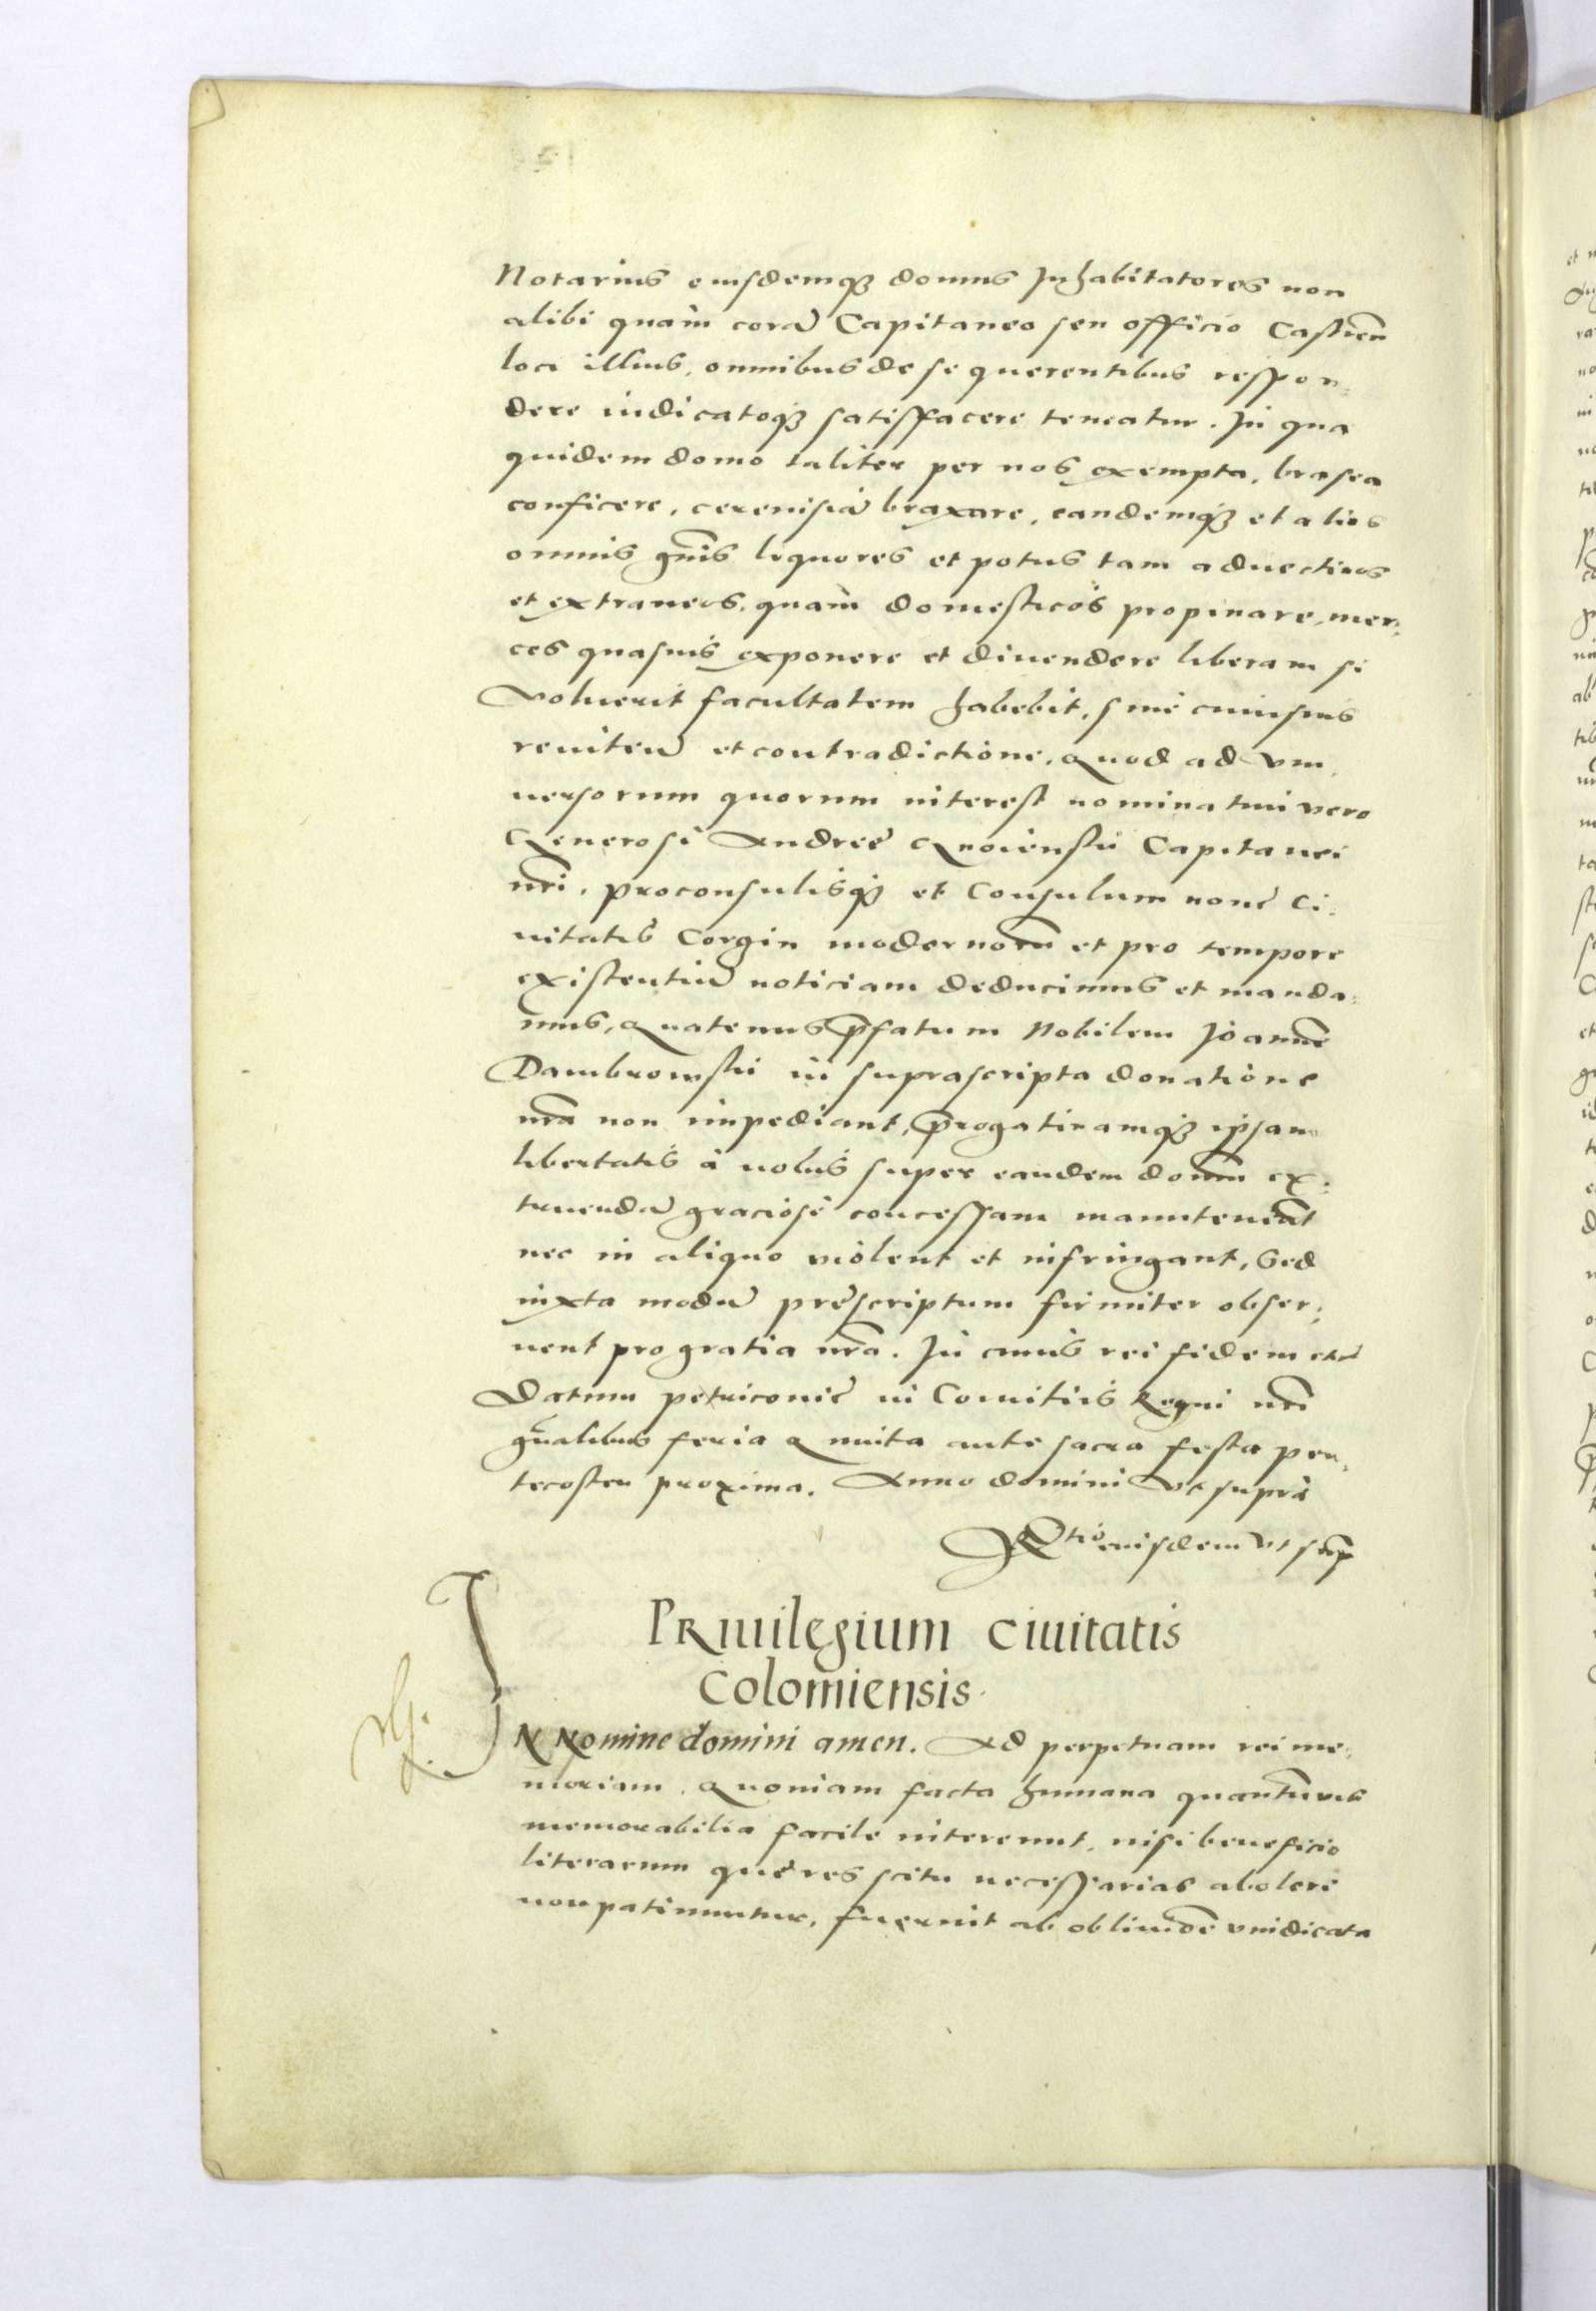 Notarius eiusdemq3 domus Inhabitatores non
alibi quàm corā Capitaneo seu officio Castren̄
loci illius, omnibus de se querentibus respon:
dere iudicatoq3 satisffacere teneatur. In qua
quidem domo taliter per nos exempta, brasea
conficere, cereuisiā braxare, eandemq3 et alios
omnis gn̄is liquores et potus tam aductiuos
et extraneos, quàm domesticos propinare, mer:
ces quasuis exponere et diuendere liberam si
Voluerit facultatem habebit, sine cuiusuis
reniteñ et contradictione, Quod ad Vni
uersorum quorum interest nominatim vero
Generosi Andree Capitanei
nr̄i, proconsulisq3 et Consulum noue Ci:
uitatis Corgin modernorū et pro tempore
existentiū noticiam deducimus et manda:
mus, Quatenus p̄fatum Nobilem Joannē
Dambrowskj in suprascripta donatione
nr̄a non impediant, p̄rogatiuamq3 ipsam
libertatis à nobis super eandem domū ex:
truendā graciose concessam manuteneāt
nec in aliquo violent et infringant, Sed
iuxta modū prescriptum firmiter obser:
uent pro gratia nr̄a. In cuius rei fidem etc̄
Datum petricouie in Comitiis Regni nr̄i
gn̄alibus feria Quinta ante sacra festa pen:
tecosten proxima. Anno domini Vt suprà
R̄tio eiusdem vt sup̄
Priuilegium Ciuitatis
Colomiensis.
IN Nomine domini amen. Ad perpetuam rei me:
moriam. Quoniam facta humana quantūuis
memorabilia facile intereunt, nisi beneficio
literarum que res scitu necessarias abolere
non patiuntur, fuerint ab obliuiōe vindicata